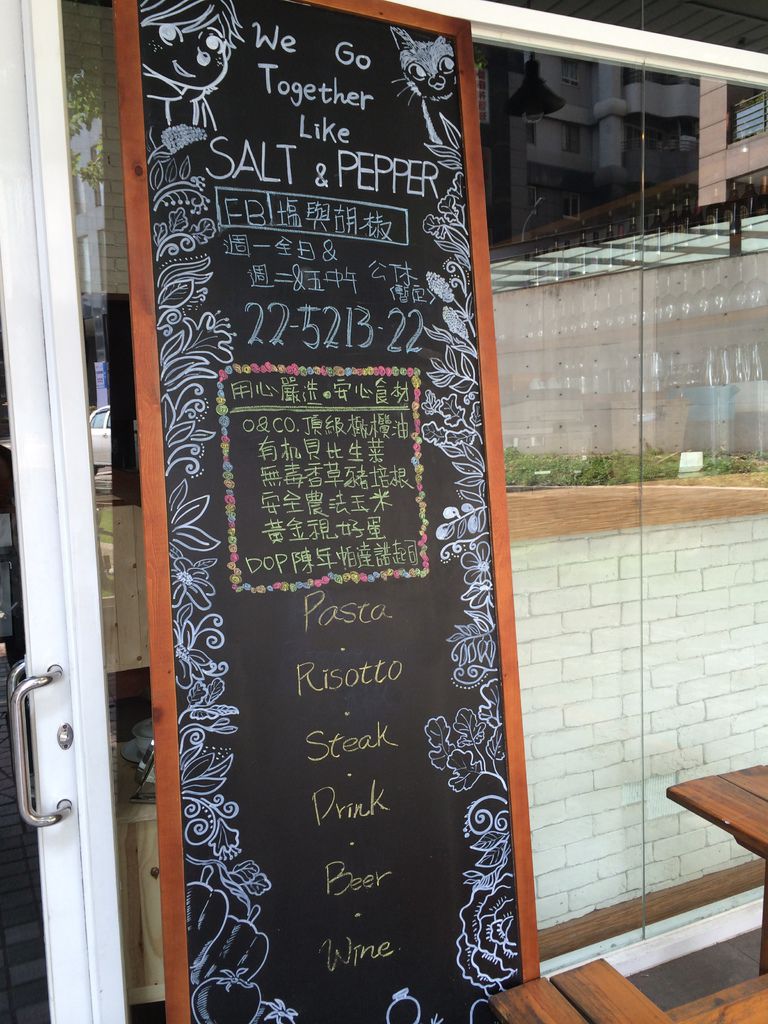 We Go
Together
Like
SALT & PEPPER
FB 塩與胡椒
週一全日 &
週二&五中午 公休
22-5213-22
用心嚴选・安心食材
O&CO. 頂級橄欖油
有机貝比生菜
無毒香草豬培根
安全農法玉米
黃金視好蛋
DOP陳年帕達諾起司
Pasta
·
Risotto
·
Steak
·
Drink
·
Beer
·
Wine